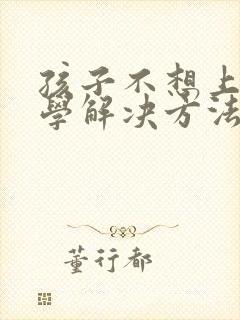 孩子不想上
學解决方法
董行都